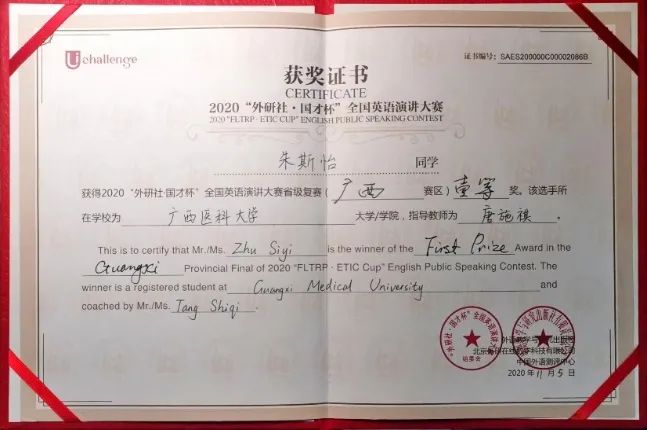 Uchallenge
证书编号：SAES200000C00002086B
获奖证书
CERTIFICATE
2020“外研社·国才杯”全国英语演讲大赛
2020 "FLTRP · ETIC CUP" ENGLISH PUBLIC SPEAKING CONTEST
朱斯怡 同学
获得2020“外研社·国才杯”全国英语演讲大赛省级复赛（广西 赛区）壹等 奖。该选手所
在学校为 广西医科大学 大学/学院，指导教师为 唐施祺 。
This is to certify that Mr./Ms. Zhu Siyi is the winner of the First Prize Award in the
Guangxi Provincial Final of 2020 "FLTRP · ETIC Cup" English Public Speaking Contest. The
winner is a registered student at Guangxi Medical University and
coached by Mr./Ms. Tang Shiqi .
“外研社·国才杯”全国英语演讲大赛
组委会
外语教学与研究出版社
北京外研在线数字科技有限公司
中国外语测评中心
2020年11月5日